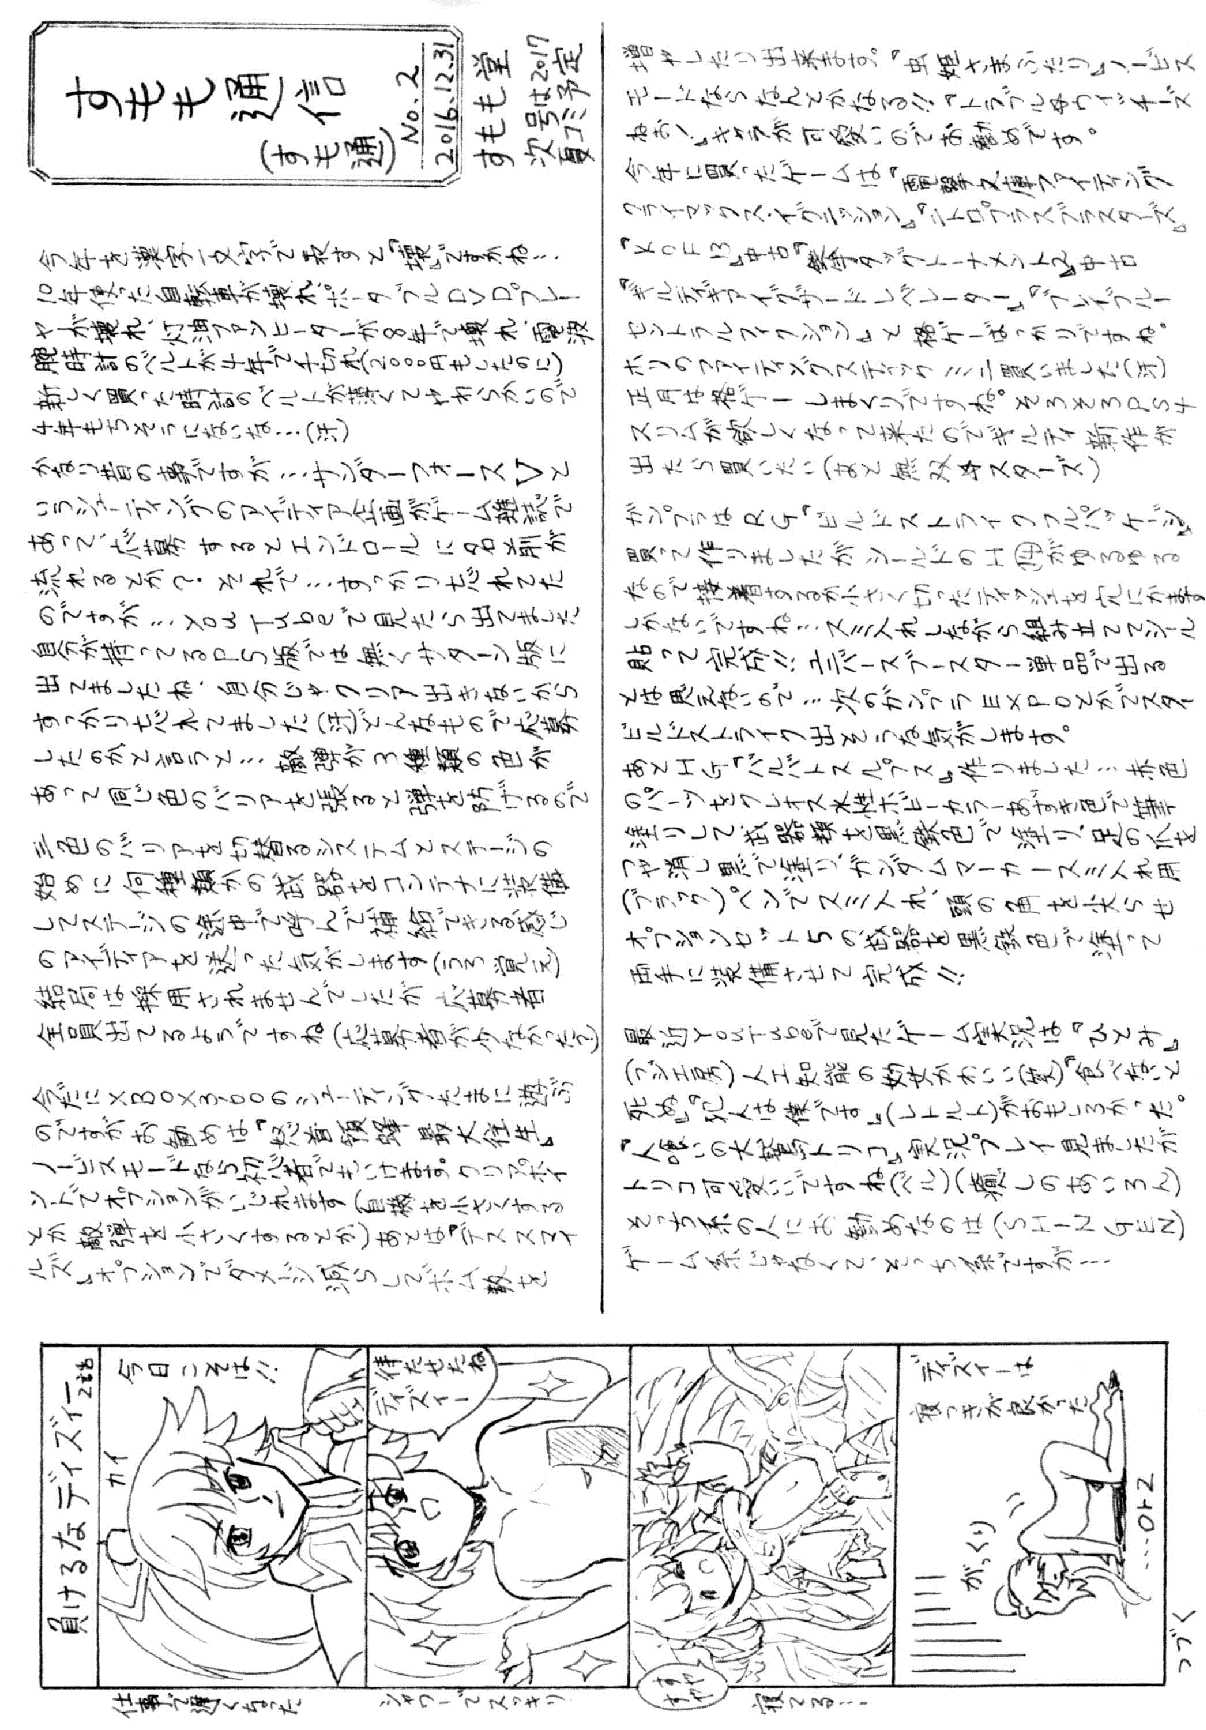 すもも通信
(すも通)
No.2
2016.12.31
すもも堂
次号は2017
夏コミ予定
今年を漢字一文字で表すと『壊』ですかね…
10年使った自転車が壊れ、ポータブルDVDプレー
ヤーが壊れ、灯油ファンヒーターが8年で壊れ、電波
腕時計のベルトが4年で千切れ(2000円もしたのに)
新しく買った時計のベルトが薄くてやわらかいので
4年もちそうにないな…(汗)
かなり昔の事ですが…サンダーフォースVと
いうシューティングのアイディア企画がゲーム雑誌で
あって、応募するとエンドロールに名前が
流れるとか?それで…すっかり忘れてた
のですが…YouTubeで見たら出てました
自分が持ってるPS版では無くサターン版に
出てましたね、自分じゃクリア出きないから
すっかり忘れてました(汗)どんなもので応募
したのかと言うと…敵弾が3種類の色が
あって同じ色のバリアを張ると弾を防げるので
三色のバリアを切替るシステムとステージの
始めに何種類かの武器をコンテナに装備
してステージの途中で呼んで補給できる感じ
のアイディアを送った気がします(うろ覚え)
結局は採用されませんでしたが応募者
全員出てるようですね(応募者が少なかった?)
今だにXBOX360のシューティングたまに遊ぶ
のですがお勧めは『怒首領蜂最大往生』
ノービスモードなら初心者でもいけます。クリアポイ
ントでオプションがいじれます(自機を小さくする
とか敵弾を小さくするとか)あとは『デススマイ
ルズ』オプションでダメージ減らしてボム数を
増やしたり出来ます。『虫姫さまふたり』ノービス
モードならなんとかなる!!『トラブル☆ウィッチーズ
ねお!』キャラが可愛いのでお勧めです。
今年に買ったゲームは『電撃文庫ファイティング
クライマックスイグニッション』『ニトロプラスブラスターズ』
『KOF13』中古『鉄拳タッグトーナメント2』中古
『ギルティギアイグザードレベレーター』『ブレイブルー
セントラルフィクション』と格ゲーばっかりですね。
ホリのファイティングスティックミニ買いました(汗)
正月は格ゲーしまくりですね。そろそろPS4
スリムが欲しくなって来たのでギルティ新作が
出たら買いたい(あと無双☆スターズ)
ガンプラはRG『ビルドストライクフルパッケージ』
買って作りましたがシールドのH型がゆるゆる
なので接着するか小さく切ったティッシュを穴にかます
しかないですね…スミ入れしながら組み立ててシール
貼って完成!!ユニバースブースター単品で出る
とは思えないので…次のガンプラEXPOとかでスター
ビルドストライク出そうな気がします。
あとHG『バルバトスルプス』作りました…赤色
のパーツをクレオス水性ホビーカラーあずき色で筆
塗りして武器類を黒鉄色で塗り、足の爪を
つや消し黒で塗り、ガンダムマーカースミ入れ用
(ブラック)ペンでスミ入れ、頭の角を尖らせ
オプションセット5の武器を黒鉄色で塗って
両手に装備させて完成!!
最近YouTubeで見たゲーム実況は『ひとみ』
(フジエ房)人工知能の幼女かわいい(笑)『食べないと
死ぬ』『犯人は僕です』(レトルト)がおもしろかった。
『人喰いの大鷲トリコ』実況プレイ見ましたが
トリコ可愛いですね(ベル)(癒しのあいろん)
そっち系の人にお勧めなのは(SHIN GEN)
ゲーム系じゃなくて、そっち系ですが…
負けるなディズィー
2話
今日こそは!!
カイ
仕事で遅くなった
待たせたね
ディズィー
シャワーでスッキリ
すやすや
寝てる…
ディズィーは
寝つきが良かった
がっくり
…OTZ
つづく